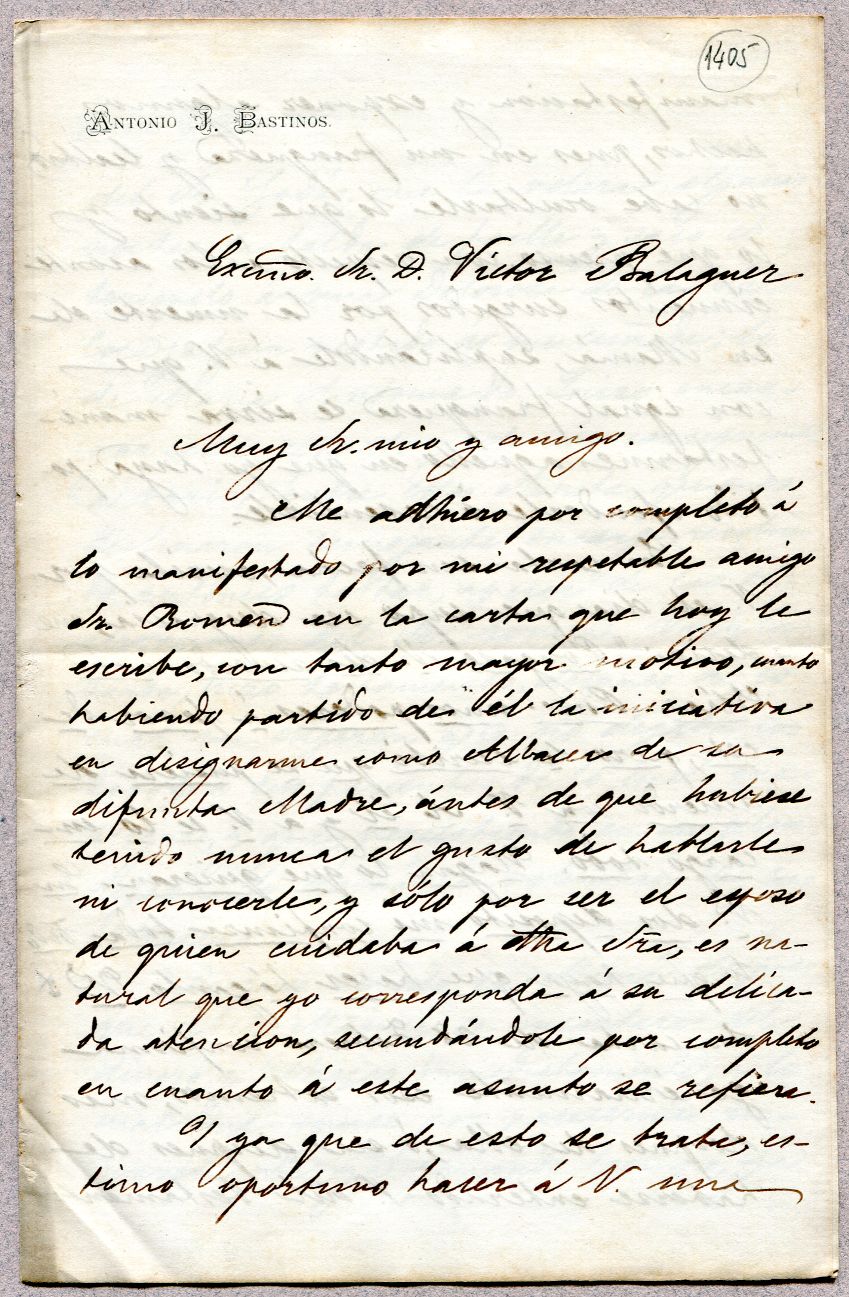 1405
ANTONIO J. BASTINOS.
Excmo. Sr. D. Victor Balaguer
Muy Sr. mio y amigo.
Me adhiero por completo á
lo manifestado por mi respetable amigo
Sr. Romeu en la carta que hoy le
escribe, con tanto mayor motivo, cuanto
habiendo partido de él la iniciativa
en designarme como Albacea de su
difunta Madre, ántes de que hubiese
tenido nunca el gusto de hablarle
ni conocerle, y sólo por ser el esposo
de quien cuidaba á dha Sra, es na-
tural que yo corresponda á su delica-
da atencion, secundándole por completo
en cuanto á este asunto se refiera.
Y ya que de esto se trata, es-
timo oportuno hacer á V. una